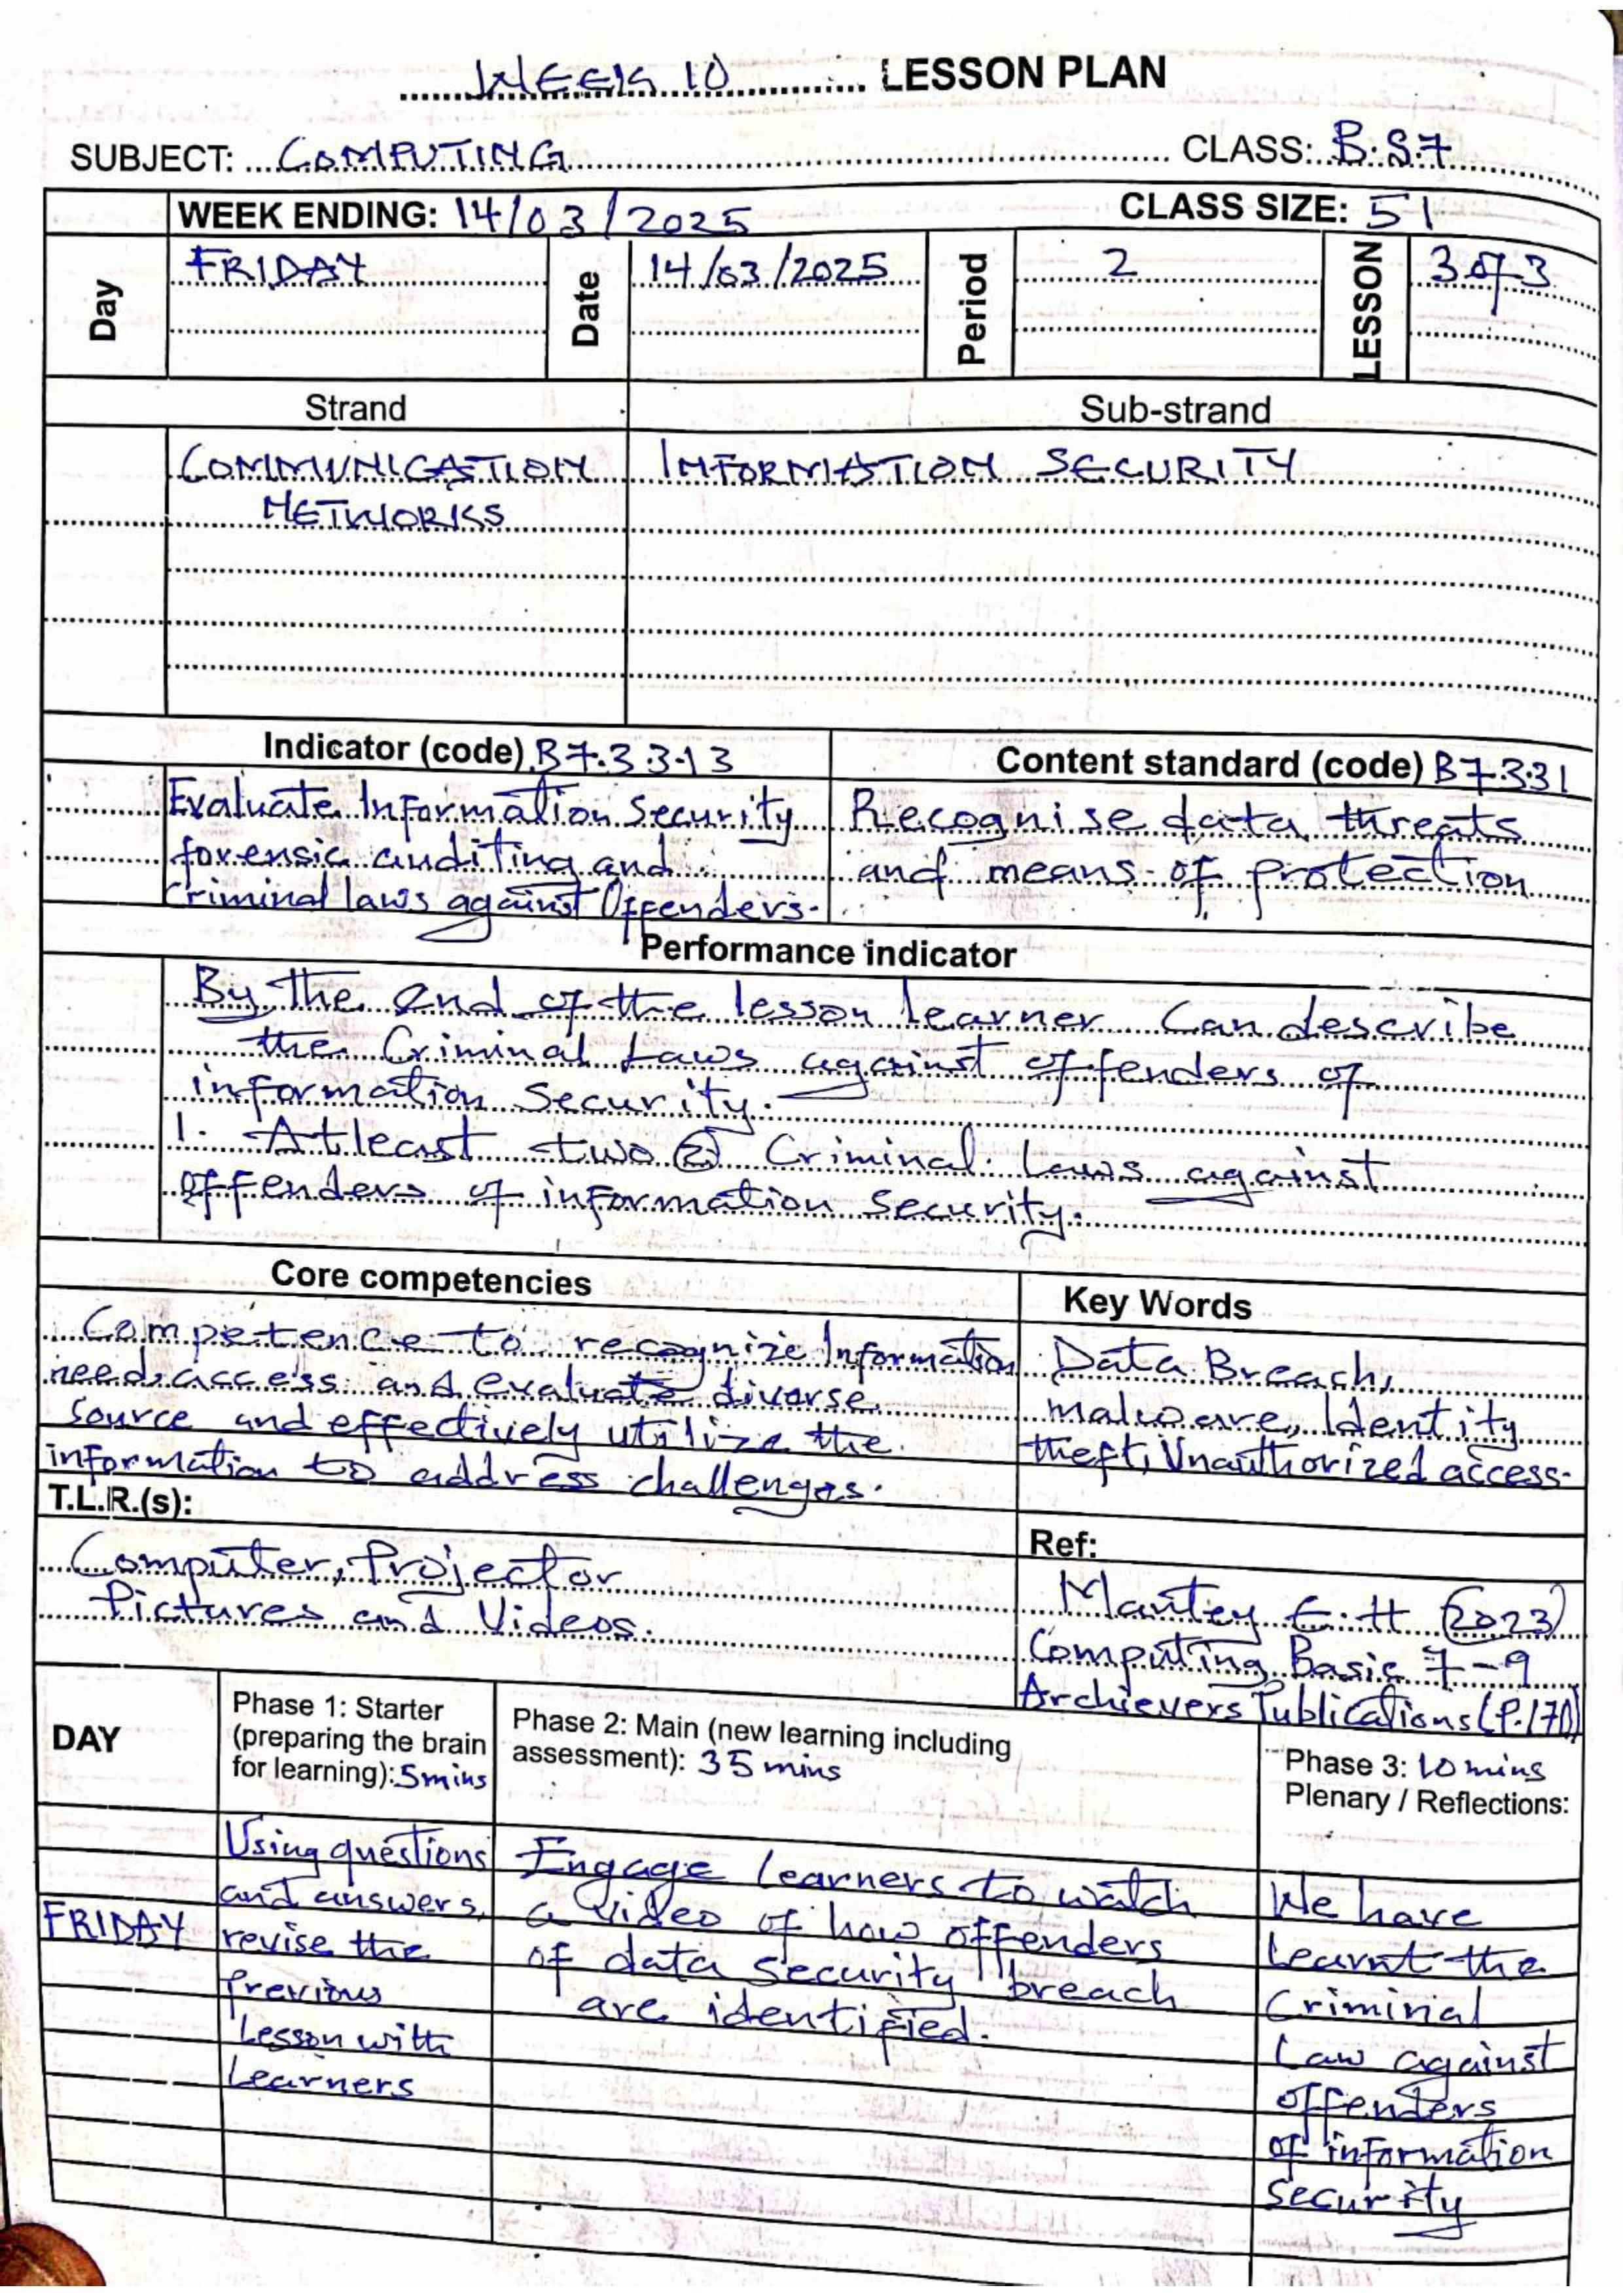 WEEK 10 LESSON PLAN
SUBJECT: COMPUTING CLASS: B.S.7
WEEK ENDING: 14/03/2025 CLASS SIZE: 51
Day FRIDAY Date 14/03/2025 Period 2 LESSON 3 of 3
Strand Sub-strand
COMMUNICATION INFORMATION SECURITY
NETWORKS
Indicator (code) B7.3.3.1.3 Content standard (code) B7.3.3.1
Evaluate Information Security Recognise data threats
forensic auditing and and means of protection
Criminal laws against Offenders.
Performance indicator
By the end of the lesson learner can describe
the Criminal Laws against offenders of
information Security.
1. Atleast two (2) Criminal Laws against
offenders of information Security.
Core competencies Key Words
Competence to recognize Information Data Breach,
need, access and evaluate diverse malware, Identity
source and effectively utilize the theft, Unauthorized access.
information to address challenges.
T.L.R.(s): Ref:
Computer, Projector Mantey E.H (2023)
Pictures and Videos. Computing Basic 7-9
Archievers Publications (P.170)
DAY
Phase 1: Starter
(preparing the brain
for learning): 5mins
Phase 2: Main (new learning including
assessment): 35 mins
Phase 3: 10 mins
Plenary / Reflections:
FRIDAY
Using questions
and answers,
revise the
previous
Lesson with
Learners
Engage Learners to watch
a video of how offenders
of data security breach
are identified.
We have
Learnt the
Criminal
Law against
offenders
of information
Security